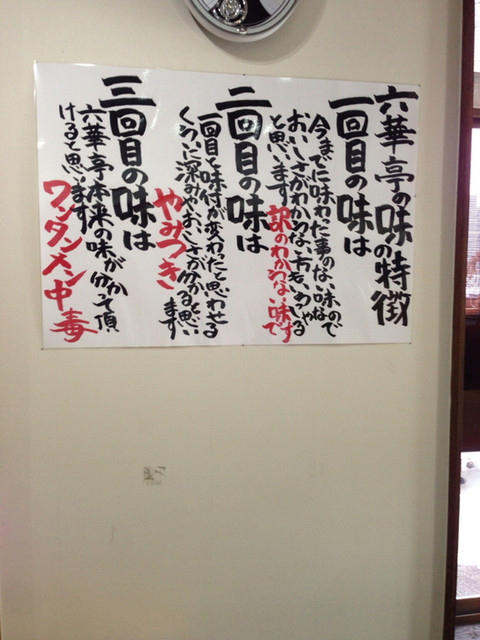 六華亭の味の特徴
一回目の味は
今までに味わった事のない味なので
おいしさがわからない方もいらっしゃる
と思います
訳のわからない味です
二回目の味は
一回目と味付が変わったと思わせる
くらいに深みやおいしさが分かると思い
ます
やみつき
三回目の味は
六華亭本来の味が分かって頂
けると思います
ワンタンメン中毒